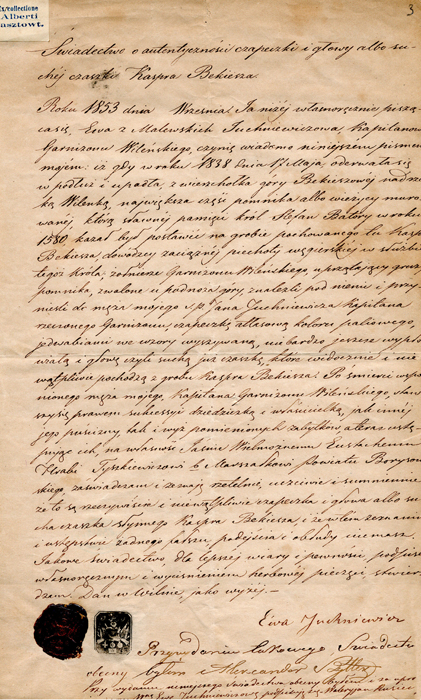 Ex collectione
Alberti
3
Świadectwo o autentyczności czapeczki i głowy albo su-
chéj czaszki Kaspra Bekiesza.
Roku 1853 dnia Września! Ja niżéj własnoręcznie piszą-
ca się, Ewa z Malewskich Juchniewiczowa, Kapitanowa
Garnizonu Wileńskiego, czynię wiadomo niniejszem pismem
mojem: iż gdy w roku 1838 dnia Maja, oderwała się
w podłuż i upadła, z wierzchołka góry Bekieszowéj nad rze-
ką Wilenką, największa część pomnika albo wieżycy muro-
wanéj, którą sławnéj pamięci król Stefan Batory w roku
1580, kazał był postawić na grobie pochowanego tu Kaspra
Bekiesza dowódzcy zaciężnéj piechoty węgierskiéj w służbie
tegoż króla; żołnierze Garnizonu Wileńskiego, uprzątający gruzy
pomnika, zwalone u podnoża góry, znaleźli pod niemi i przy-
nieśli do męża mojego ś.p. Jana Juchniewicza Kapitana
rzeczonego Garnizonu, czapeczkę atłasową koloru paliowego,
jedwabiami we wzory wyszywaną, niebardzo jeszcze wypło-
wiałą i głowę czyli suchą już czaszkę, które widocznie i nie
wątpliwie pochodzą z grobu Kaspra Bekiesza! Po śmierci wspo-
mnionego męża mojego, Kapitana Garnizonu Wileńskiego, staw-
szy się prawem sukcessyi dziedziczką i właścicielką, jak innéj
jego puścizny, tak i wyż pomienionych zabytków, a teraz ustę-
pując ich, na własność, Jaśnie Wielmożnemu Eustachemu
Hrabi Tyszkiewiczowi b. Marszałkowi Powiatu Borysow-
skiego, zaświadczam i zeznaję rzetelnie, uczciwie i sumiennie,
że to są rzeczywiście i niewątpliwie czapeczka i głowa albo su-
cha czaszka słynnego Kaspra Bekiesza i że w tem zeznaniu
i ustępstwie żadnego fałszu, podejścia i obłudy nie masz.
Jakowe świadectwo, dla lepszéj wiary i pewności podpisem
własnoręcznym i wyciśnieniem herbowéj pieczęci, stwier-
dzam. Dan w Wilnie, jako wyżéj.—
Ewa Juchniewicz
Przy daniu takowego Świadectwa
obecny byłem Alexander
Przy wydaniu niniejszego świadectwa obecny byłem i za